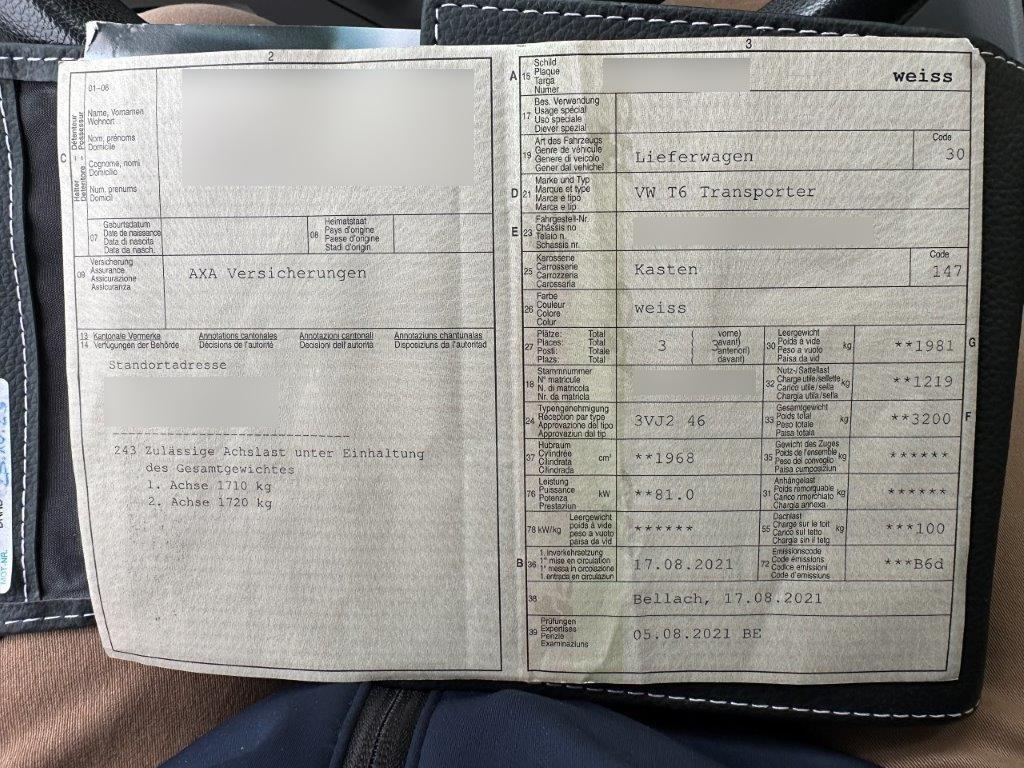 2
01-06
C
Halter – Détenteur
Detentore – Possessur
Name, Vornamen
Wohnort
Nom, prénoms
Domicile
Cognome, nomi
Domicilio
Num, prenums
Domicil
07
Geburtsdatum
Date de naissance
Data di nascita
Data da nasch.
08
Heimatstaat
Pays d'origine
Paese d'origine
Stadi d'origin.
09
Versicherung
Assurance
Assicurazione
Assicuranza
AXA Versicherungen
13 Kantonale Vermerke Annotations cantonales Annotazioni cantonali Annotaziuns chantunalas
14 Verfügungen der Behörde Décisions de l'autorité Decisioni dell'autorità Disposiziuns da l'autoritad
Standortadresse
243 Zulässige Achslast unter Einhaltung
des Gesamtgewichtes
1. Achse 1710 kg
2. Achse 1720 kg
3
A 15
Schild
Plaque
Targa
Numer
weiss
17
Bes. Verwendung
Usage spécial
Uso speciale
Diever spezial
19
Art des Fahrzeugs
Genre de véhicule
Genere di veicolo
Gener dal vehichel
Lieferwagen
Code
30
D 21
Marke und Typ
Marque et type
Marca e tipo
Marca e tip
VW T6 Transporter
E 23
Fahrgestell-Nr.
Châssis no
Telaio n.
Schassis nr.
25
Karosserie
Carrosserie
Carrozzeria
Carossaria
Kasten
Code
147
26
Farbe
Couleur
Colore
Colur
weiss
27
Plätze: Total
Places: Total
Posti: Totale
Plazs: Total
3
( vorne)
davant)
anteriori)
davant)
30
Leergewicht
Poids à vide
Peso a vuoto
Paisa da vid
kg
**1981
G
18
Stammnummer
N° matricule
N. di matricola
Nr. da matricla
32
Nutz-/Sattellast
Charge utile/sellette
Carico utile/sella
Chargia utila/sella
kg
**1219
24
Typengenehmigung
Réception par type
Approvazione del tipo
Approvaziun dal tip
3VJ2 46
33
Gesamtgewicht
Poids total
Peso totale
Paisa totala
kg
**3200
F
37
Hubraum
Cylindrée
Cilindrata
Cilindrada
cm³
**1968
35
Gewicht des Zuges
Poids de l'ensemble
Peso del convoglio
Paisa cumposiziun
kg
******
76
Leistung
Puissance
Potenza
Prestaziun
kW
**81.0
31
Anhängelast
Poids remorquable
Carico rimorchiato
Chargia annexa
kg
******
78 kW/kg
Leergewicht
poids à vide
peso a vuoto
paisa da vid
******
55
Dachlast
Charge sur le toit
Carico sul tetto
Chargia sin il tetg
kg
***100
B 36
1. Inverkehrsetzung
1re mise en circulation
1a messa in circolazione
1. entrada en circulaziun
17.08.2021
72
Emissionscode
Code émissions
Codice emissioni
Code d'emissiuns
***B6d
38
Bellach, 17.08.2021
39
Prüfungen
Expertises
Perizie
Examinaziuns
05.08.2021 BE